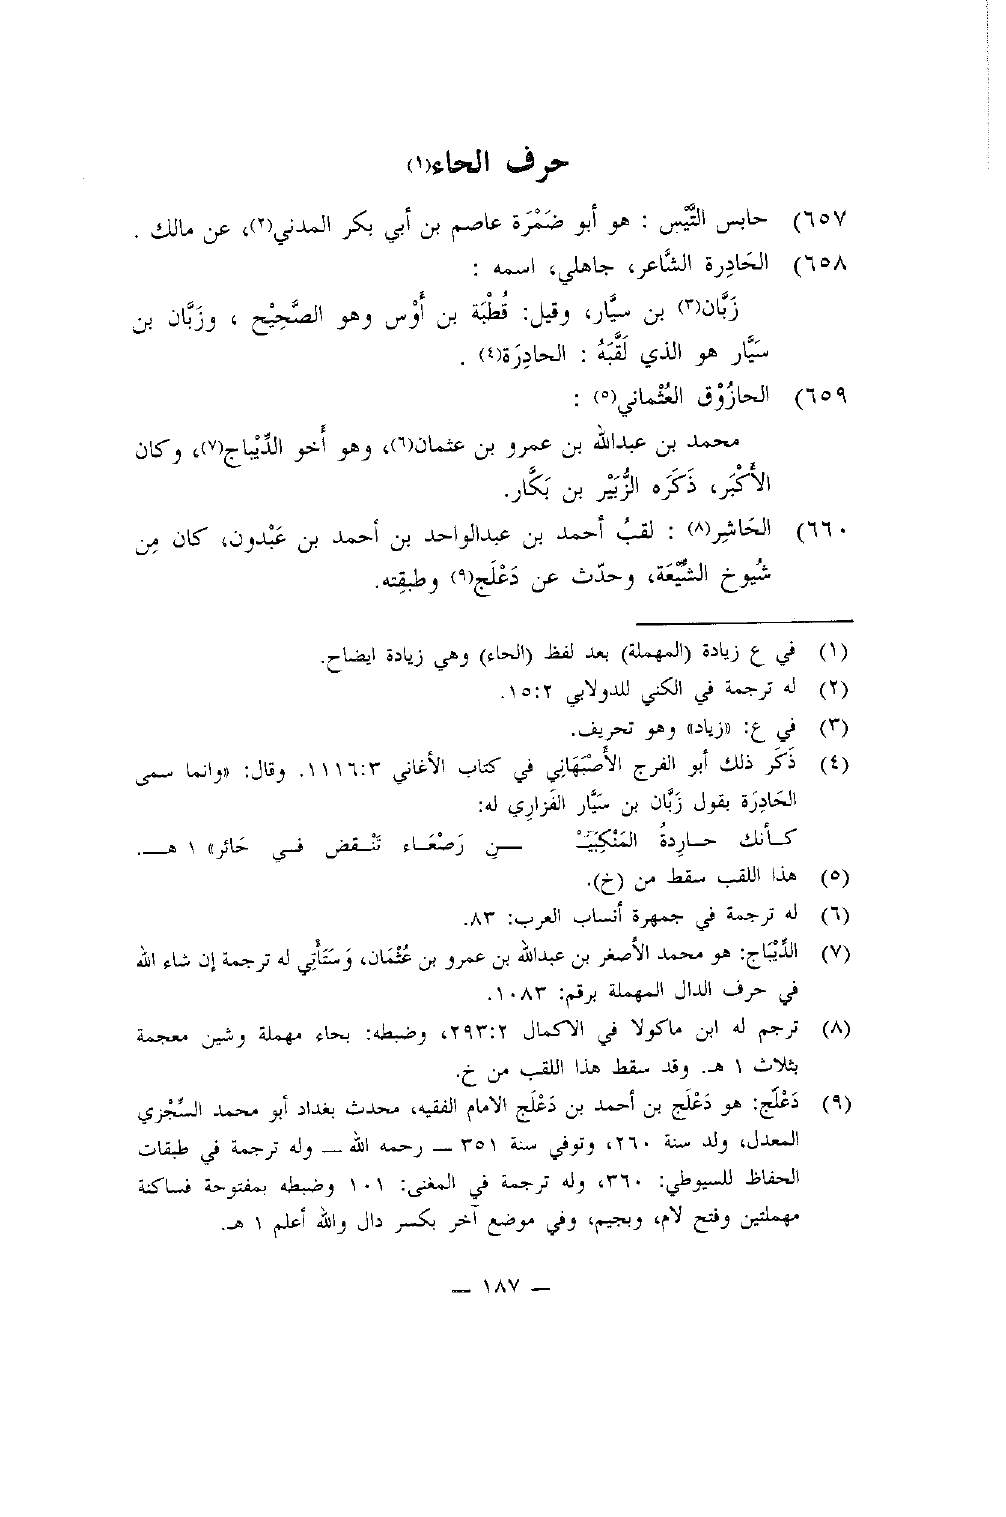 حرف الحاء(١)
٦٥٧) حابس التَّيْس : هو أبو ضَمْرَة عاصم بن أبي بكر المدني(٢)، عن مالك .
٦٥٨) الحَادِرة الشَّاعر، جاهلي، اسمه :
زَبَّان(٣) بن سيَّار، وقيل: قُطْبَة بن أَوْس وهو الصَّحِيْح ، وزَبَّان بن
سَيَّار هو الذي لَقَّبَهُ : الحادِرَة(٤) .
٦٥٩) الحازُوْق العُثْماني(٥) :
محمد بن عبدالله بن عمرو بن عثمان(٦)، وهو أَخو الدِّيْباج(٧)، وكان
الأَكْبَر، ذَكَرَه الزُّبَيْر بن بَكَّار.
٦٦٠) الحَاشِر(٨) : لقبُ أحمد بن عبدالواحد بن أحمد بن عَبْدون، كان مِن
شُيوخ الشِّيْعَة، وحدّث عن دَعْلَج(٩) وطبقِته.
(١) في ع زيادة (المهملة) بعد لفظ (الحاء) وهي زيادة ايضاح.
(٢) له ترجمة في الكني للدولابي ١٥:٢.
(٣) في ع: «زياد» وهو تحريف.
(٤) ذَكَر ذلك أبو الفرج الأَصْبَهَانِي في كتاب الأغاني ١١١٦:٣. وقال: «وانما سمى
الحَادِرَة بقول زَبَّان بن سَيَّار الفَزارِي له:
كـأنك حـارِدةُ المَنْكِبَيْـ ـنِ رَصْعَـاء تَنْـقض فـي حَائر» ١ هـ.
(٥) هذا اللقب سقط من (خ).
(٦) له ترجمة في جمهرة أنساب العرب: ٨٣.
(٧) الدِّيْبَاج: هو محمد الأصغر بن عبدالله بن عمرو بن عُثْمَان، وَسَتَأْتِي له ترجمة إن شاء الله
في حرف الدال المهملة برقم: ١٠٨٣.
(٨) ترجم له ابن ماكولا في الاكمال ٢٩٣:٢، وضبطه: بحاء مهملة وشين معجمة
بثلاث ١ هـ. وقد سقط هذا اللقب من خ.
(٩) دَعْلَج: هو دَعْلَج بن أحمد بن دَعْلَج الامام الفقيه، محدث بغداد أبو محمد السِّجْزي
المعدل، ولد سنة ٢٦٠، وتوفي سنة ٣٥١ ــ رحمه الله ــ وله ترجمة في طبقات
الحفاظ للسيوطي: ٣٦٠، وله ترجمة في المغنى: ١٠١ وضبطه بمفتوحة فساكنة
مهملتين وفتح لام، وبجيم، وفي موضع آخر بكسر دال والله أعلم ١ هـ.
ــ ١٨٧ ــ